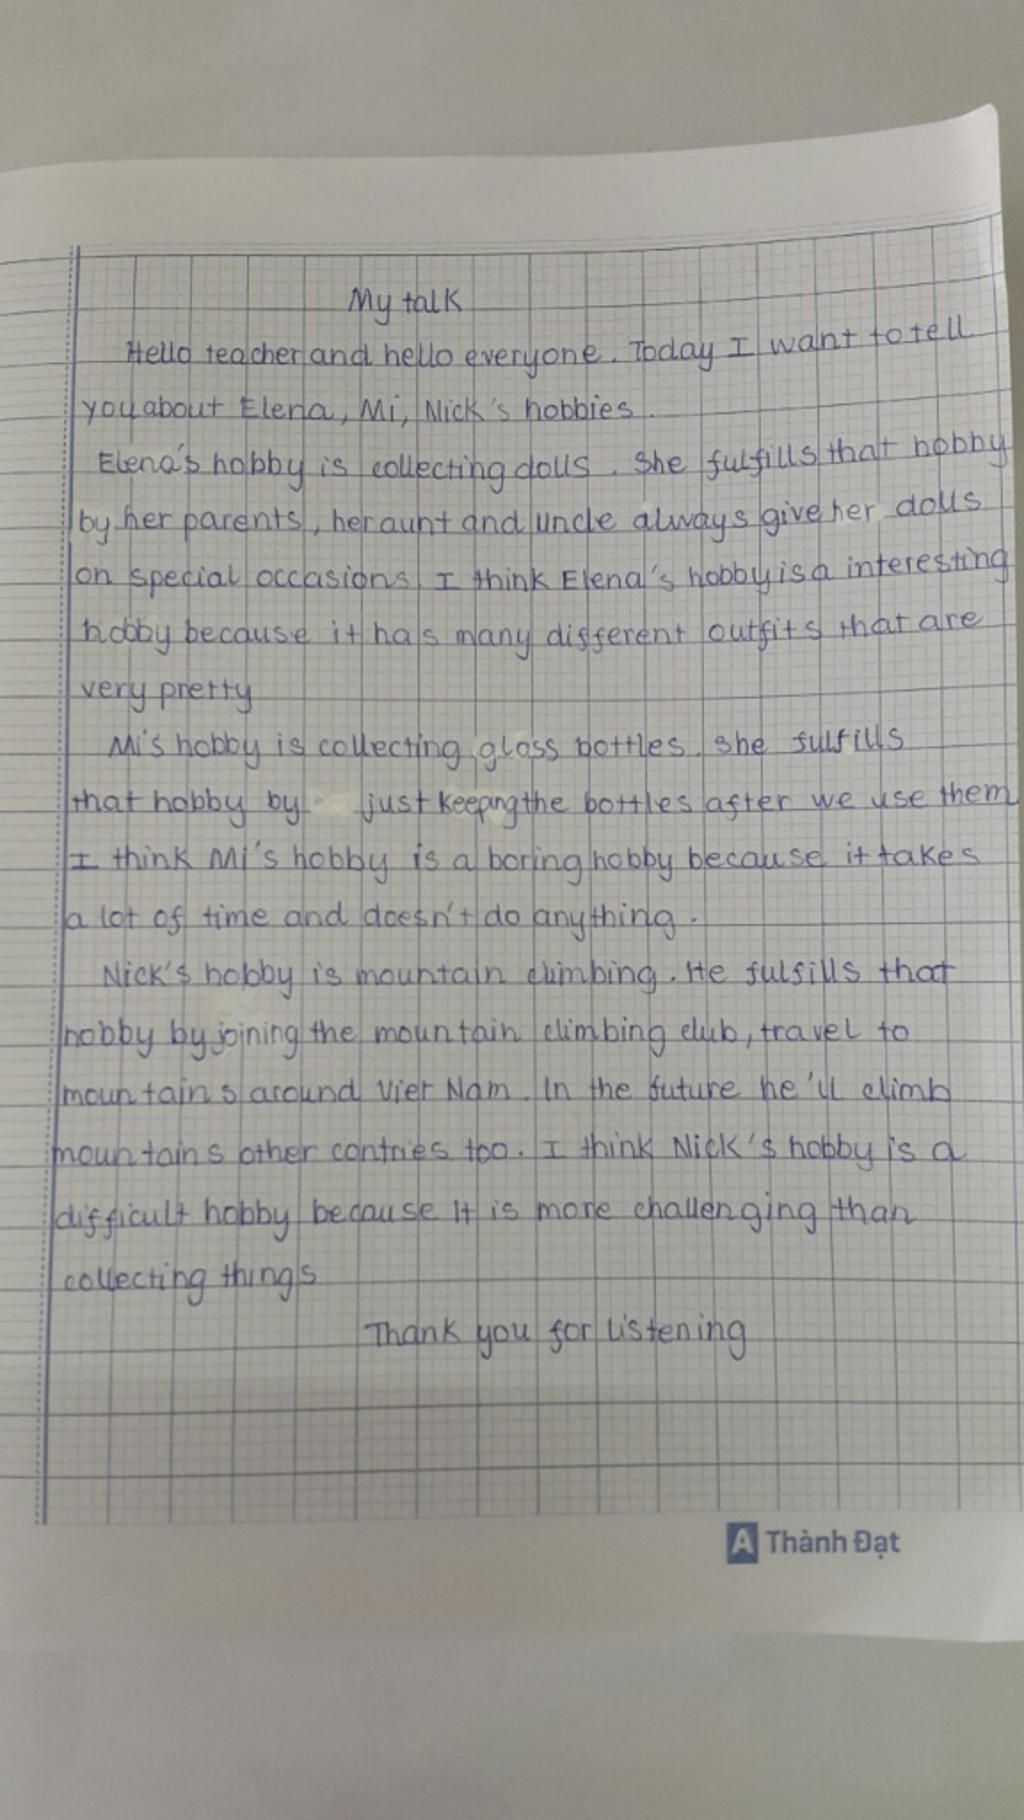 My talk
Hello teacher and hello everyone. Today I want to tell
you about Elena, Mi, Nick's hobbies.
Elena's hobby is collecting dolls. She fulfills that hobby
by her parents, her aunt and uncle always give her dolls
on special occasions. I think Elena's hobby is a interesting
hobby because it has many different outfits that are
very pretty
Mi's hobby is collecting glass bottles. She fulfills
that hobby by just keeping the bottles after we use them
I think Mi's hobby is a boring hobby because it takes
a lot of time and doesn't do anything.
Nick's hobby is mountain climbing. He fulfills that
hobby by joining the mountain climbing club, travel to
mountains around Viet Nam. In the future he'll climb
mountains other contries too. I think Nick's hobby is a
difficult hobby because It is more challenging than
collecting things
Thank you for listening
A Thành Đạt